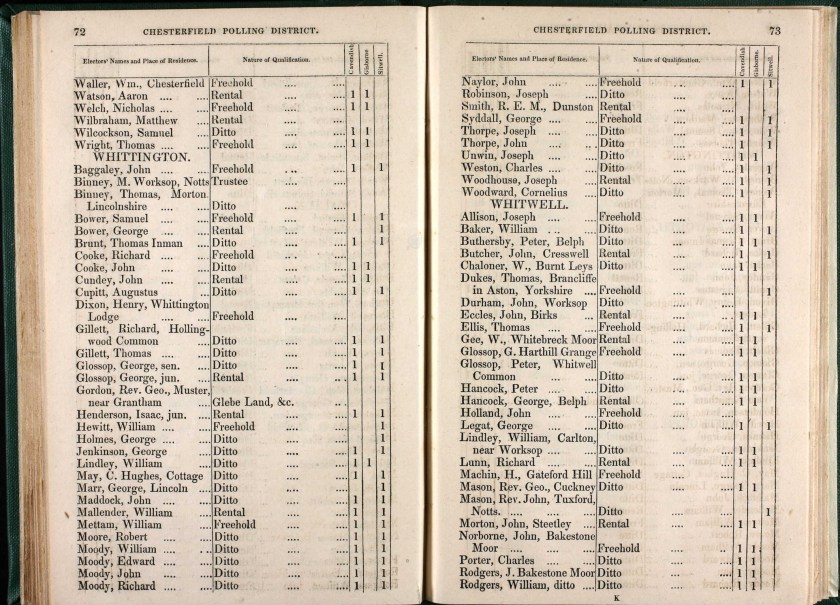 72 CHESTERFIELD POLLING DISTRICT.
Electors' Names and Place of Residence. Nature of Qualification. Cavendish Gisborne Sitwell.
Waller, Wm., Chesterfield Freehold .... ....
Watson, Aaron .... .... Rental .... .... 1 1
Welch, Nicholas .... .... Freehold .... .... 1 1
Wilbraham, Matthew .... Rental .... ....
Wilcockson, Samuel .... Ditto .... .... 1 1
Wright, Thomas .... .... Freehold .... .... 1 1
WHITTINGTON.
Baggaley, John .... .... Freehold .... .... 1 1
Binney, M. Worksop, Notts Trustee .... ....
Binney, Thomas, Morton
Lincolnshire .... .... Ditto .... ....
Bower, Samuel .... .... Freehold .... .... 1 1
Bower, George .... .... Rental .... .... 1
Brunt, Thomas Inman .... Ditto .... .... 1 1
Cooke, Richard .... .... Freehold .... ....
Cooke, John .... .... Ditto .... .... 1 1
Cundey, John .... .... Rental .... .... 1 1
Cupitt, Augustus .... Ditto .... .... 1 1
Dixon, Henry, Whittington
Lodge .... .... Freehold .... ....
Gillett, Richard, Holling-
wood Common .... Ditto .... .... 1 1
Gillett, Thomas .... .... Ditto .... .... 1 1
Glossop, George, sen. .... Ditto .... .... 1 1
Glossop, George, jun. .... Rental .... .... 1 1
Gordon, Rev. Geo., Muster,
near Grantham .... Glebe Land, &c. ....
Henderson, Isaac, jun. .... Rental .... .... 1 1
Hewitt, William .... .... Freehold .... .... 1
Holmes, George .... .... Ditto .... .... 1
Jenkinson, George .... Ditto .... .... 1 1
Lindley, William .... Ditto .... .... 1 1
May, C. Hughes, Cottage Ditto .... .... 1 1
Marr, George, Lincoln .... Ditto .... .... 1
Maddock, John .... .... Ditto .... .... 1 1
Mallender, William .... Rental .... .... 1 1
Mettam, William .... Freehold .... .... 1 1
Moore, Robert .... .... Ditto .... .... 1 1
Moody, William .... .... Ditto .... .... 1 1
Moody, Edward .... .... Ditto .... .... 1 1
Moody, John .... .... Ditto .... .... 1 1
Moody, Richard .... .... Ditto .... .... 1 1
CHESTERFIELD POLLING DISTRICT. 73
Electors' Names and Place of Residence. Nature of Qualification. Cavendish Gisborne. Sitwell.
Naylor, John .... .... Freehold .... .... 1 1
Robinson, Joseph .... Ditto .... ....
Smith, R. E. M., Dunston Rental .... ....
Syddall, George .... .... Freehold .... .... 1 1
Thorpe, Joseph .... .... Ditto .... .... 1 1
Thorpe, John .... .... Ditto .... .... 1 1
Unwin, Joseph .... .... Ditto .... .... 1 1
Weston, Charles .... .... Ditto .... .... 1 1
Woodhouse, Joseph .... Rental .... .... 1 1
Woodward, Cornelius .... Ditto .... .... 1 1
WHITWELL.
Allison, Joseph .... .... Freehold .... .... 1 1
Baker, William .... .... Ditto .... .... 1 1
Buthersby, Peter, Belph Ditto .... .... 1 1
Butcher, John, Cresswell Rental .... .... 1
Chaloner, W., Burnt Leys Ditto .... .... 1 1
Dukes, Thomas, Brancliffe
in Aston, Yorkshire .... Freehold .... .... 1
Durham, John, Worksop Ditto .... ....
Eccles, John, Birks .... Rental .... .... 1 1
Ellis, Thomas .... .... Freehold .... .... 1 1
Gee, W., Whitebreck Moor Rental .... .... 1 1
Glossop, G. Harthill Grange Freehold .... .... 1 1
Glossop, Peter, Whitwell
Common .... .... Ditto .... .... 1 1
Hancock, Peter .... .... Ditto .... .... 1 1
Hancock, George, Belph Rental .... .... 1 1
Holland, John .... .... Freehold .... ....
Legat, George .... .... Ditto .... .... 1 1
Lindley, William, Carlton,
near Worksop .... .... Ditto .... .... 1 1
Lunn, Richard .... .... Rental .... .... 1 1
Machin, H., Gateford Hill Freehold .... ....
Mason, Rev. Geo., Cuckney Ditto .... .... 1 1
Mason, Rev. John, Tuxford,
Notts. .... .... .... Ditto .... .... 1
Morton, John, Steetley .... Rental .... .... 1 1
Norborne, John, Bakestone
Moor .... .... .... Freehold .... .... 1 1
Porter, Charles .... .... Ditto .... .... 1 1
Rodgers, J. Bakestone Moor Ditto .... .... 1 1
Rodgers, William, ditto .... Ditto .... .... 1 1
K